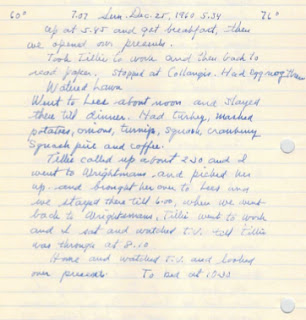 60° 7.07 Sun. Dec. 25, 1960 5.34 76°
Up at 5.45 and got breakfast, then
we opened our presents.
Took Tillie to work and then back to
read paper. Stopped at Collangio. Had Egg nog then
Watered lawn
Went to Lees about noon and stayed
there til dinner. Had turkey, mashed
potatoes, onions, turnips, squash, cranberry
Squash pie and coffee.
Tillie called up about 2:30 and I
went to Wrightsmans and picked her
up and brought her over to Lees and
we stayed there till 6:00, when we went
back to Wrightsmans, Tillie went to work
and I sat and watched T.V. till Tillie
was through at 8.10
Home and watched T.V. and looked
over presents. To bed at 10:30